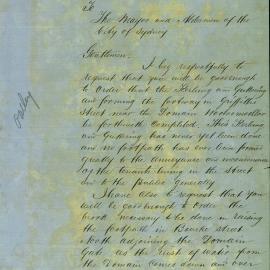 To
The Mayor and Aldermen of the
City of Sydney
Gentlemen
I beg respectfully to
request that you will be good enough
to order that the Kerbing and Guttering
and forming the footway in Griffiths
Street near the Domain Woolloomooloo
be forthwith Completed. This Kerbing
and Guttering has never yet been done
and no footpath has ever been formed
greatly to the Annoyance and inconvenience
of the tenants living in the street
and to the Public generally
I have also to request that you
will be good enough to order the
work necessary to be done in raising
the footpath in Bourke street
North adjoining the Domain
Gate as the rush of water from
the Domain comes down and over